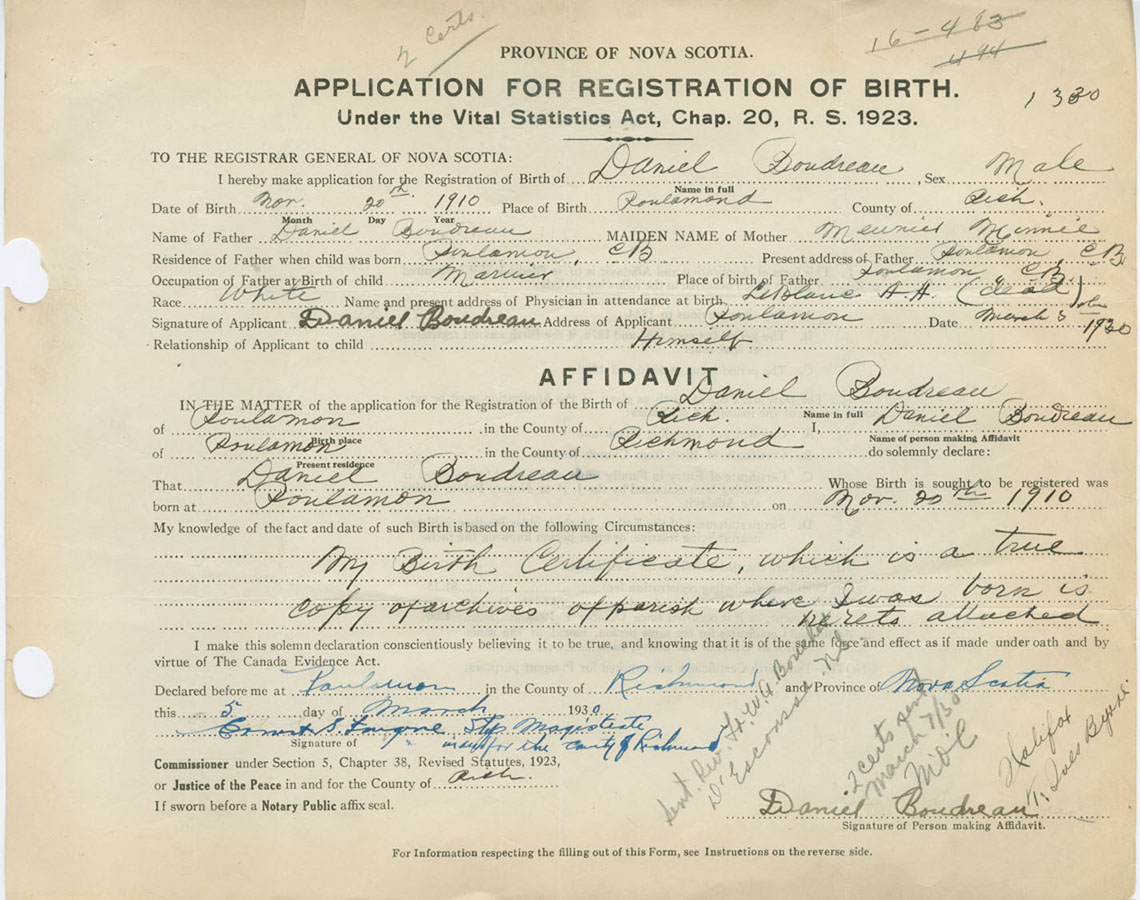 2 Certs.
16-483
494
1330
PROVINCE OF NOVA SCOTIA.
APPLICATION FOR REGISTRATION OF BIRTH.
Under the Vital Statistics Act, Chap. 20, R. S. 1923.
TO THE REGISTRAR GENERAL OF NOVA SCOTIA:
I hereby make application for the Registration of Birth of Daniel Boudreau, Sex Male
Name in full
Date of Birth Nov. 20th 1910 Place of Birth Poulamond County of Rich.
Month Day Year
Name of Father Daniel Boudreau MAIDEN NAME of Mother Meunier Minnie
Residence of Father when child was born Poulamon, CB Present address of Father Poulamon, CB
Occupation of Father at Birth of child Marinier Place of birth of Father Poulamon CB
Race White Name and present address of Physician in attendance at birth LeBlanc A.H. (dead)
Signature of Applicant Daniel Boudreau Address of Applicant Poulamon Date March 5th 1930
Relationship of Applicant to child Himself
AFFIDAVIT
IN THE MATTER of the application for the Registration of the Birth of Daniel Boudreau
Name in full
of Poulamon in the County of Rich. I, Daniel Boudreau
Birth place Name of person making Affidavit
of Poulamon in the County of Richmond do solemnly declare:
Present residence
That Daniel Boudreau Whose Birth is sought to be registered was
born at Poulamon on Nov. 20th 1910
My knowledge of the fact and date of such Birth is based on the following Circumstances:
My Birth Certificate, which is a true
copy of archives of parish where I was born is
attached
I make this solemn declaration conscientiously believing it to be true, and knowing that it is of the same force and effect as if made under oath and by
virtue of The Canada Evidence Act.
Declared before me at Poulamon in the County of Richmond and Province of Nova Scotia
this 5 day of March 1930
Stp. Magistrate
Signature of in and for the county of Richmond
Commissioner under Section 5, Chapter 38, Revised Statutes, 1923,
or Justice of the Peace in and for the County of Rich.
If sworn before a Notary Public affix seal.
Sent. Rev. Fr. W.A. Boudreau
D'Escousse N.S.
2 certs sent
March 7/30
Halifax
Daniel Boudreau
Signature of Person making Affidavit.
For Information respecting the filling out of this Form, see Instructions on the reverse side.